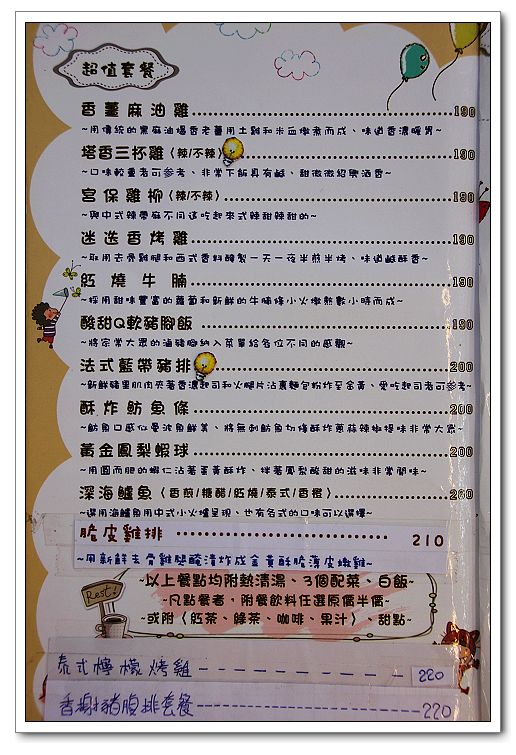 超值套餐
香薑麻油雞 190
~用傳統的黑麻油爆香老薑用土雞和米血燉煮而成、味道香濃暖胃~
塔香三杯雞(辣/不辣) 190
~口味較重者可參考、非常下飯具有鹹、甜微微紹興酒香~
宮保雞柳(辣/不辣) 190
~與中式辣帶麻不同這吃起來式辣甜辣甜的~
迷迭香烤雞 190
~取用去骨雞腿和西式香料醃製一天一夜半煎半烤、味道鹹酥香~
紅燒牛腩 190
~採用甜味豐富的蘿蔔和新鮮的牛腩條小火燉熬數小時而成~
酸甜Q軟豬腳飯 180
~將宗常大眾的滷豬腳納入菜單給各位不同的感觀~
法式藍帶豬排 200
~新鮮豬里肌肉夾著香濃起司和火腿片沾裹麵包粉炸至金黃、愛吃起司者可參考~
酥炸魴魚條 200
~魴魚口感似曼波魚鮮美、將無刺魴魚切條酥炸蔥蒜辣椒提味非常大眾~
黃金鳳梨蝦球 200
~用圓而肥的蝦仁沾著蛋黃酥炸、拌著鳳梨酸甜的滋味非常開味~
深海鱸魚(香煎/糖醋/紅燒/泰式/香橙) 260
~選用海鱸魚用中式小火爐呈現、也有各式的口味可以選擇~
脆皮雞排 210
~用新鮮去骨雞腿醃漬炸成金黃酥脆薄皮嫩雞~
~以上餐點均附熱清湯、3個配菜、白飯~
Rest!
~凡點餐者,附餐飲料任選原價半價~
~或附〈紅茶、綠茶、咖啡、果汁〉、甜點~
泰式檸檬烤雞 220
香榭豬腹排套餐 220